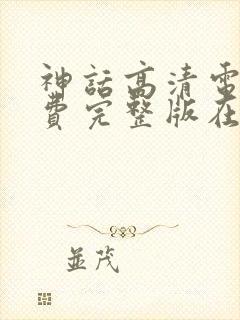 神話高清電
費完整版在
並茂